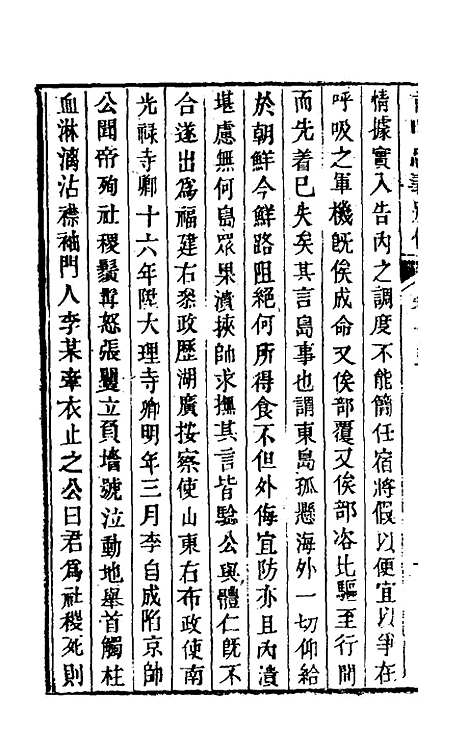 情據實入告內之調度不能簡任宿將假以便宜以爭在
呼吸之軍機旣俟成命又俟部覆又俟部咨比驅至行間
而先着已失矣其言島事也謂東島孤懸海外一切仰給
於朝鮮今鮮路阻絕何所得食不但外侮宜防亦且內潰
堪慮無何島眾果潰挾帥求撫其言皆驗公與體仁旣不
合遂出爲福建右叅政歷湖廣按察使山東右布政使南
光祿寺卿十六年陞大理寺卿明年三月李自成陷京師
公聞帝殉社稷鬚髯怒張豎立負墻號泣動地舉首觸柱
血淋漓沾襟袖門人李某牽衣止之公曰君爲社稷死則